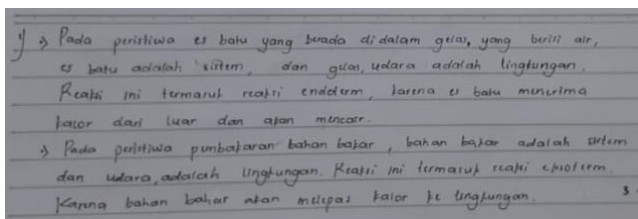 1) → Pada peristiwa es batu yang berada di dalam gelas, yang berisi air,
es batu adalah sistem, dan gelas, udara adalah lingkungan.
Reaksi ini termasuk reaksi endoterm, karena es batu menerima
kalor dari luar dan akan mencair.
→ Pada peristiwa pembakaran bahan bakar, bahan bakar adalah sistem
dan udara, adalah lingkungan. Reaksi ini termasuk reaksi eksoterm.
Karena bahan bahar akan melepas kalor ke lingkungan.
3